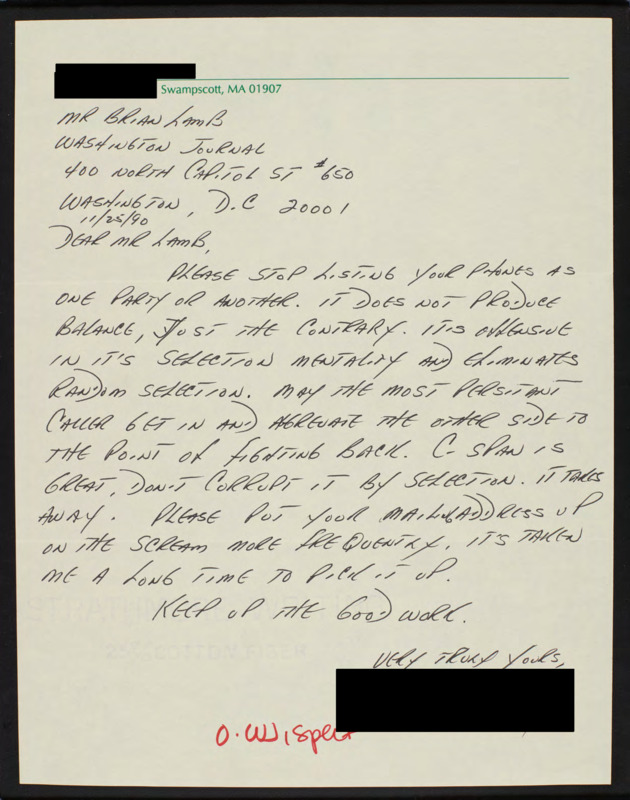 Swampscott, MA 01907
MR BRIAN LAMB
WASHINGTON JOURNAL
400 NORTH CAPITOL ST #650
WASHINGTON, D.C 20001
11/25/90
DEAR MR LAMB,
PLEASE STOP LISTING YOUR PHONES AS
ONE PARTY OR ANOTHER. IT DOES NOT PRODUCE
BALANCE, JUST THE CONTRARY. IT'S OFFENSIVE
IN IT'S SELECTION MENTALITY AND ELIMINATES
RANDOM SELECTION. MAY THE MOST PERSISTANT
CALLER GET IN AND AGREVATE THE OTHER SIDE TO
THE POINT OF FIGHTING BACK. C-SPAN IS
GREAT, DON'T CORRUPT IT BY SELECTION. IT TAKES
AWAY. PLEASE PUT YOUR MAILING ADDRESS UP
ON THE SCREAM MORE FREQUENTLY, IT'S TAKEN
ME A LONG TIME TO PICK IT UP.
KEEP UP THE GOOD WORK.
VERY TRULY YOURS,